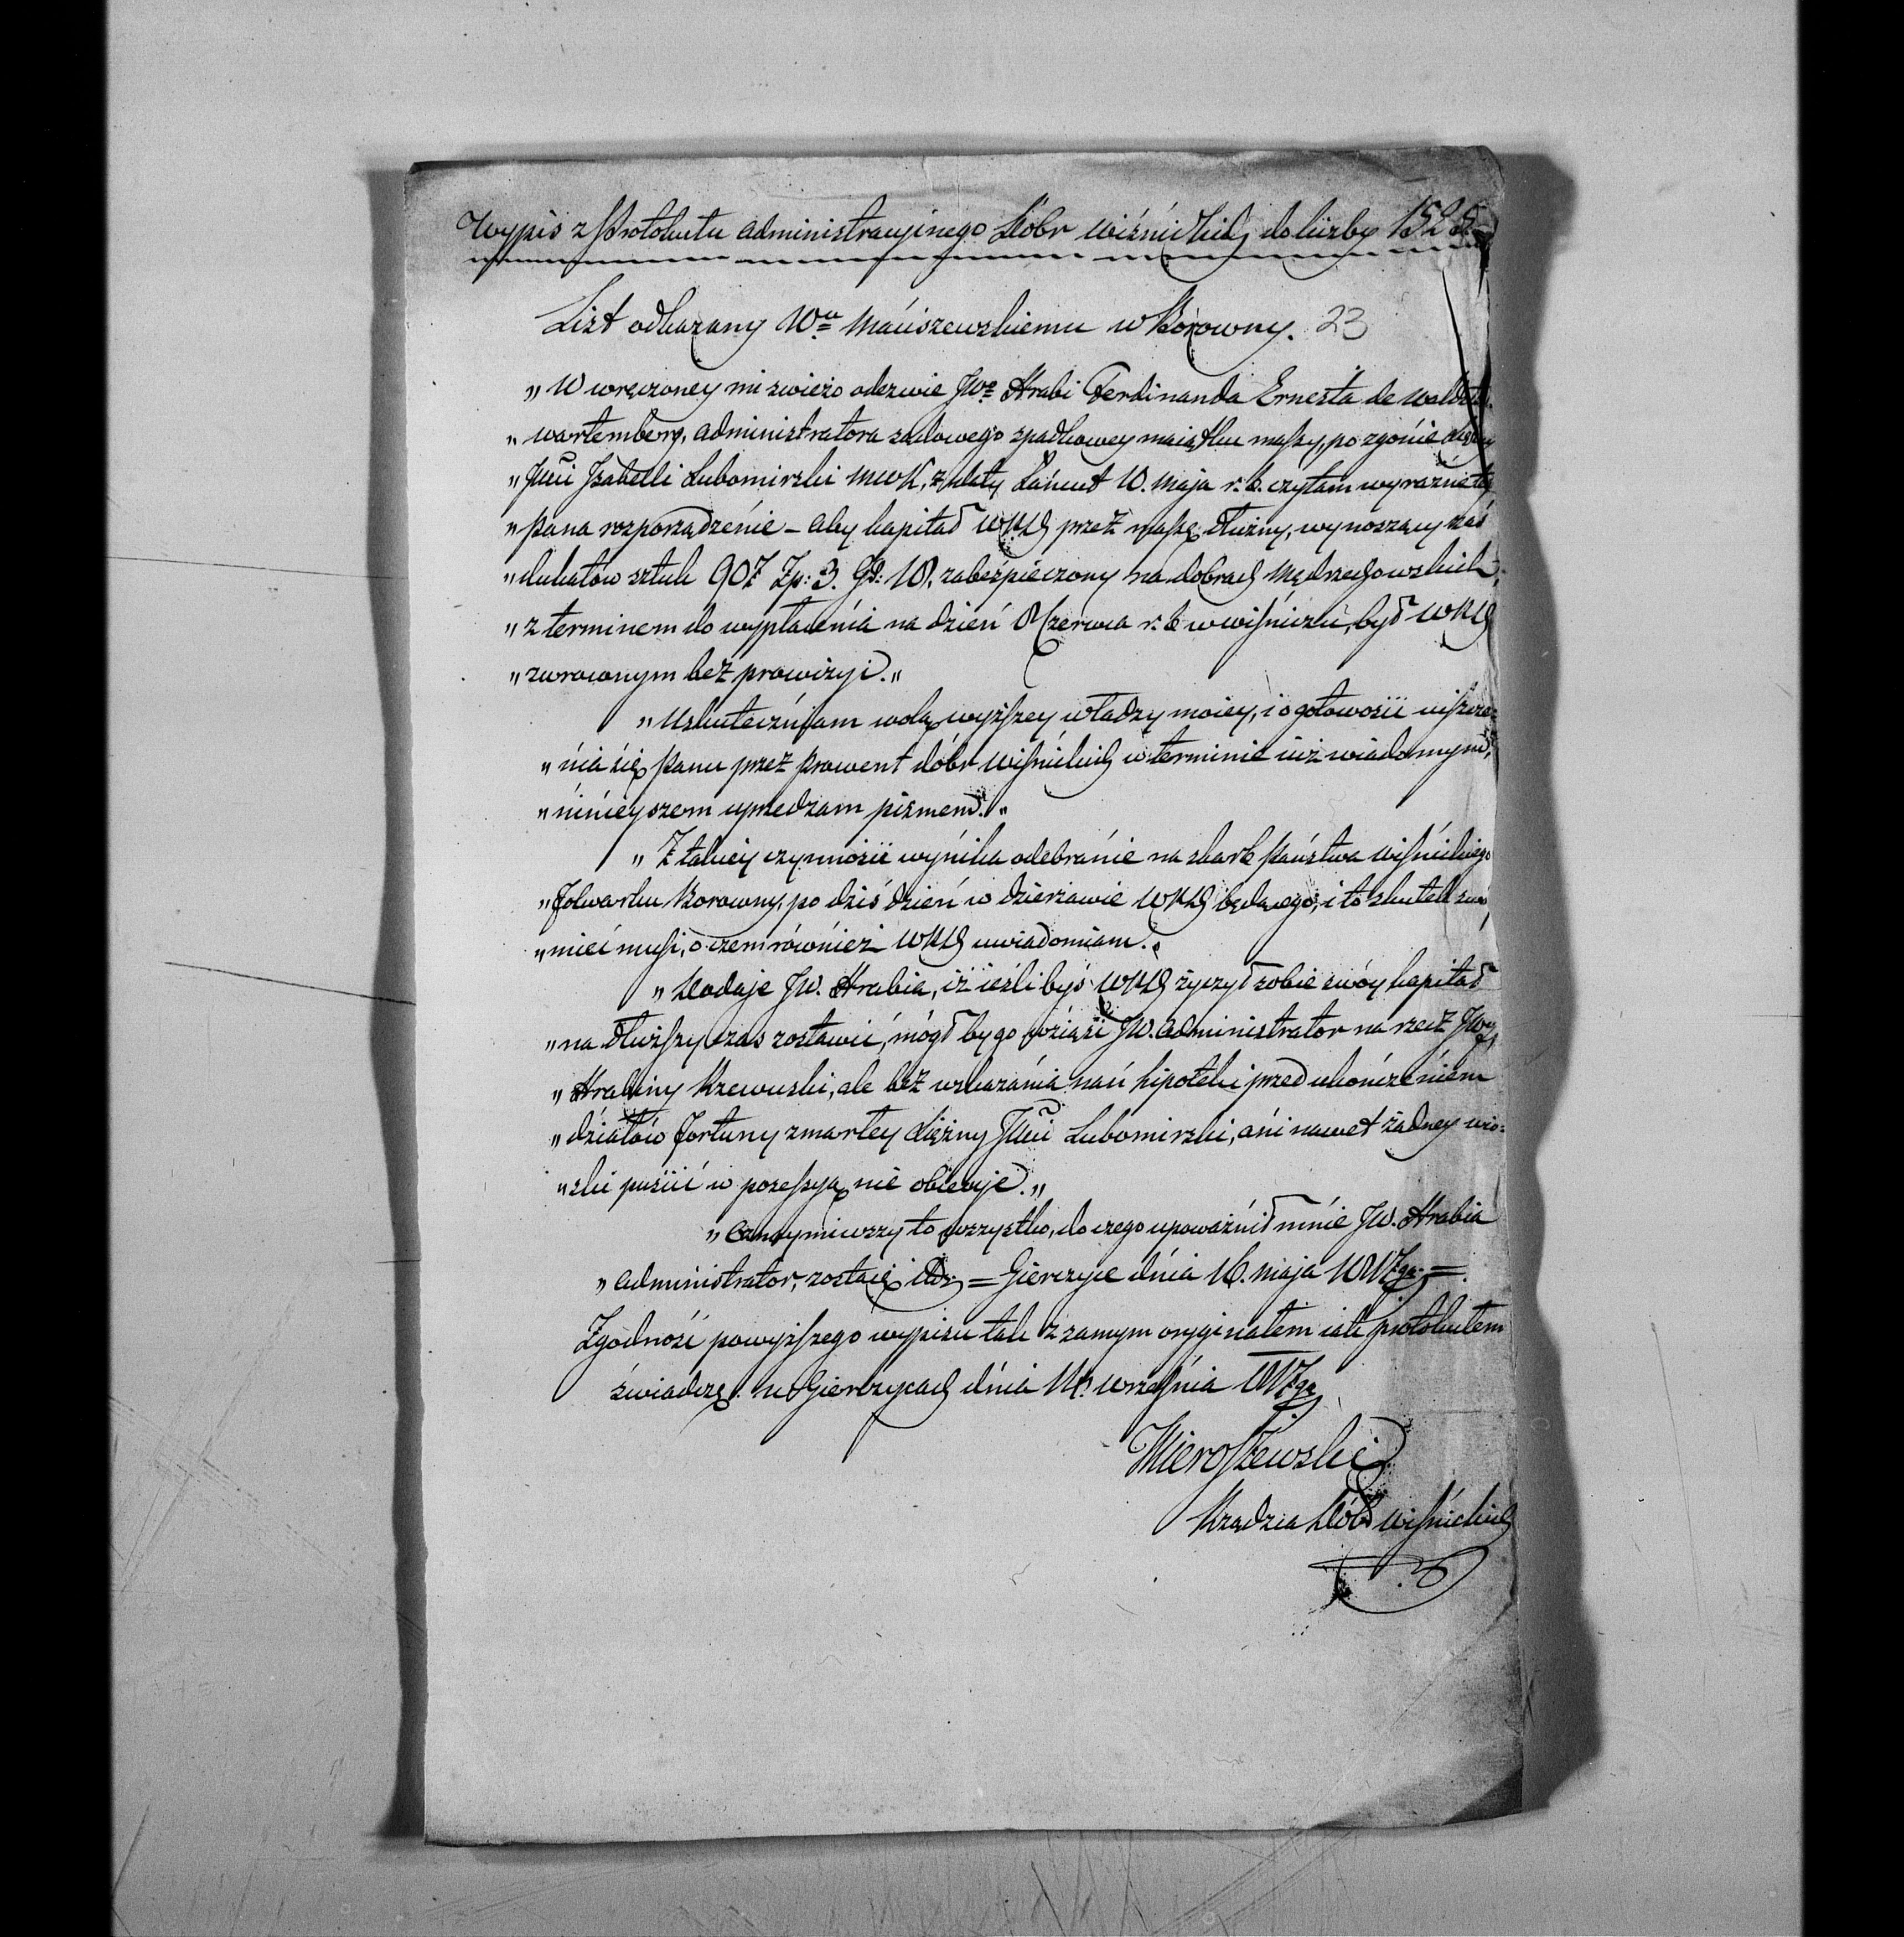 Wypis z Protokułu administracyinego Dóbr wiśnickich do liczby 1525
List odkazany Wu Maciszewskiemu w Borowny. 23
„W wręczoney mi swieżo odezwie JWo Hrabi Ferdinanda Ernesta de
„wartemberg, administratora sądowego spadkowey maiątku massy, po zgonie
„JMci Isabelli Lubomirski MWK, z daty Łańcut 10. maja r. b. czytam wyraźnie
„Pana rozporządzenie – aby kapitał przez massę dłużny, wynoszący zaś
„dukatów sztuk 907 Zp: 3. 18, zabeśpieczony na dobrach Mędrzechowskich,
„z terminem do wypłacenia na dzień 8 Czerwca r. b. w wiśniczu, był
„zwroconym beż prowizyi.„
„Uskuteczniam wolą wyższey władzy moiey, i o gotowości uiszcze=
„nia się Panu przeż prowent dóbr wiśnickich w terminie iuż wiadomym,
„ninieyszem uprzedzam pismem.„
„Z takiey czynności wynika odebranie na skarb Państwa wiśnickiego
„folwarku Borowny, po dziś dzień w dzierżawie będącego, i to skutek swó
„mieć musi, o czem równiez uwiadomiam.„
„Dodaje JW. Hrabia, iż ieśli byś życzył sobie swóy kapitał
„na dłuższy czas zostawić, mógł by go wziąść JW. administrator na rzecż JWy
„Hrabiny Rzewuski, ale beż wskazania nań hipoteki przed ukończeniem
„działów fortuny zmarłey Xiężny JMci Lubomirski, ani nawet żadney wio=
„ski puścić w possessyą nie obiecuje.„
„Oznaymiwszy to wszystko, do czego upoważnił mnie JW. Hrabia
„administrator, zostaię = Gierczyce dnia 16. maja 1817go =
Zgodność powyższego wypisu tak z samym oryginałem iak protokułem
świadczę. w Gierczycach dnia 14. września 1817go
Mieroszewski
Rządzca Dóbr wiśnickich